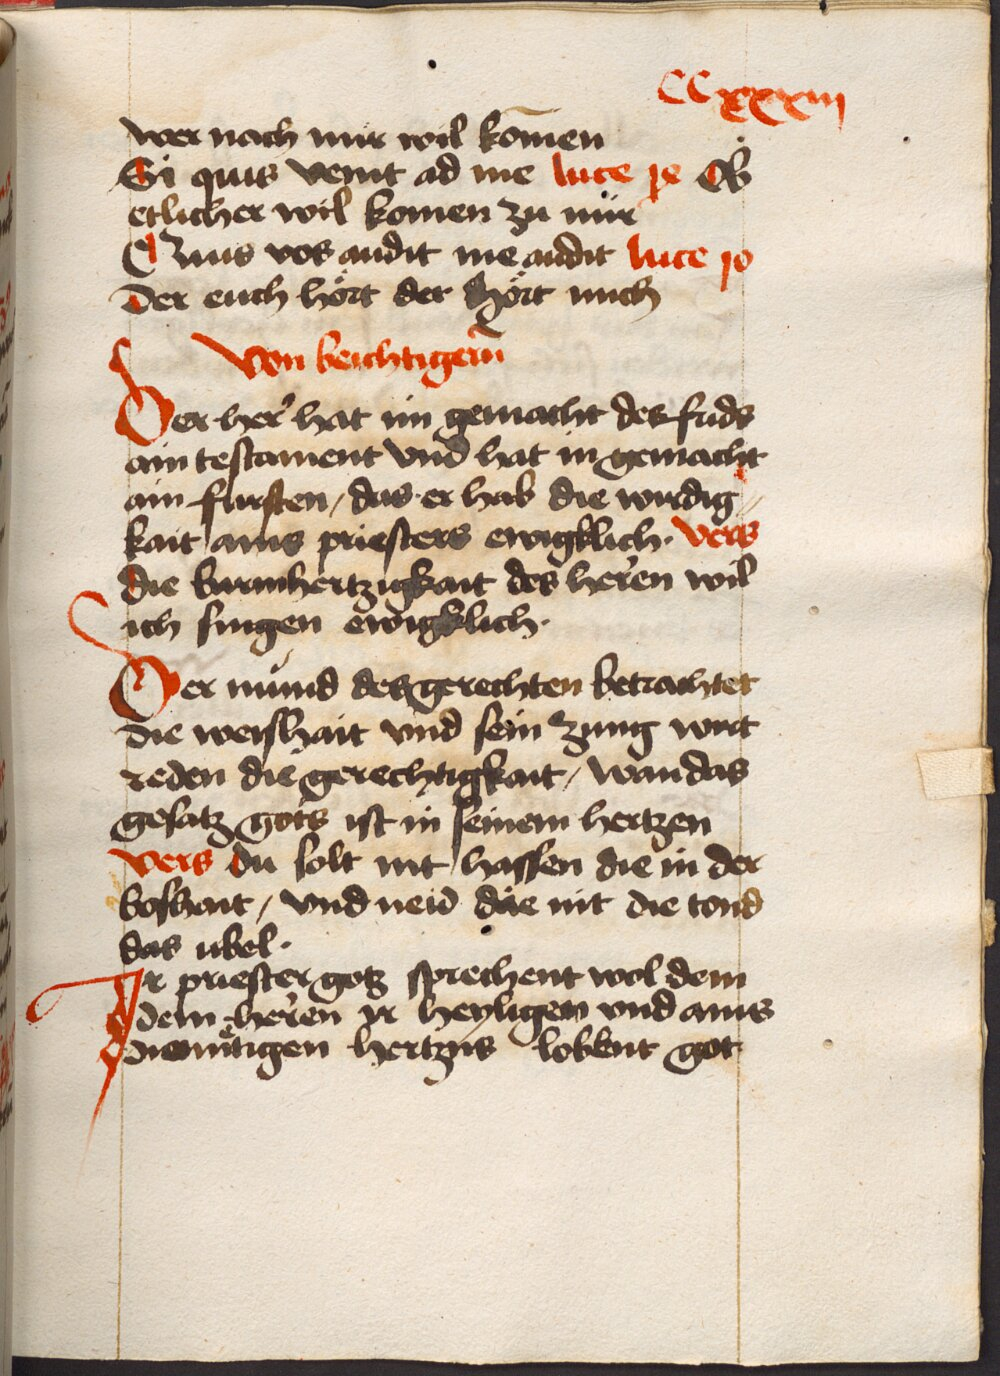 CCxxxiii
wer nach mir wil komēn
Si quis venit ad me luce xe Ob
etlicher wil komen zu mir
Quis vos audit me audit luce xo
Der euch hört der hört mich
Von beichtigern̄
Der her̄ hat im gemacht des frids
ain testament vnd hat in gemacht
ain fursten / das er hab die wirdig〃
kait ains priesters ewigklich. vers
die barmhertzigkait des her̄en wil
ich singen ewigklich.
Der mund des gerechten betrachtet
die weishait vnd sein zung wirt
reden die gerechtigkait / wan das
gesatz gots ist in seinem hertzen
vers du solt nit hassen die in der
boshait / vnd neid die nit die tond
das ubel.
Ir priester gotz sprechent wol dem
dem her̄en yr heyligen vnd ains
diemütigen hertzns lobent got